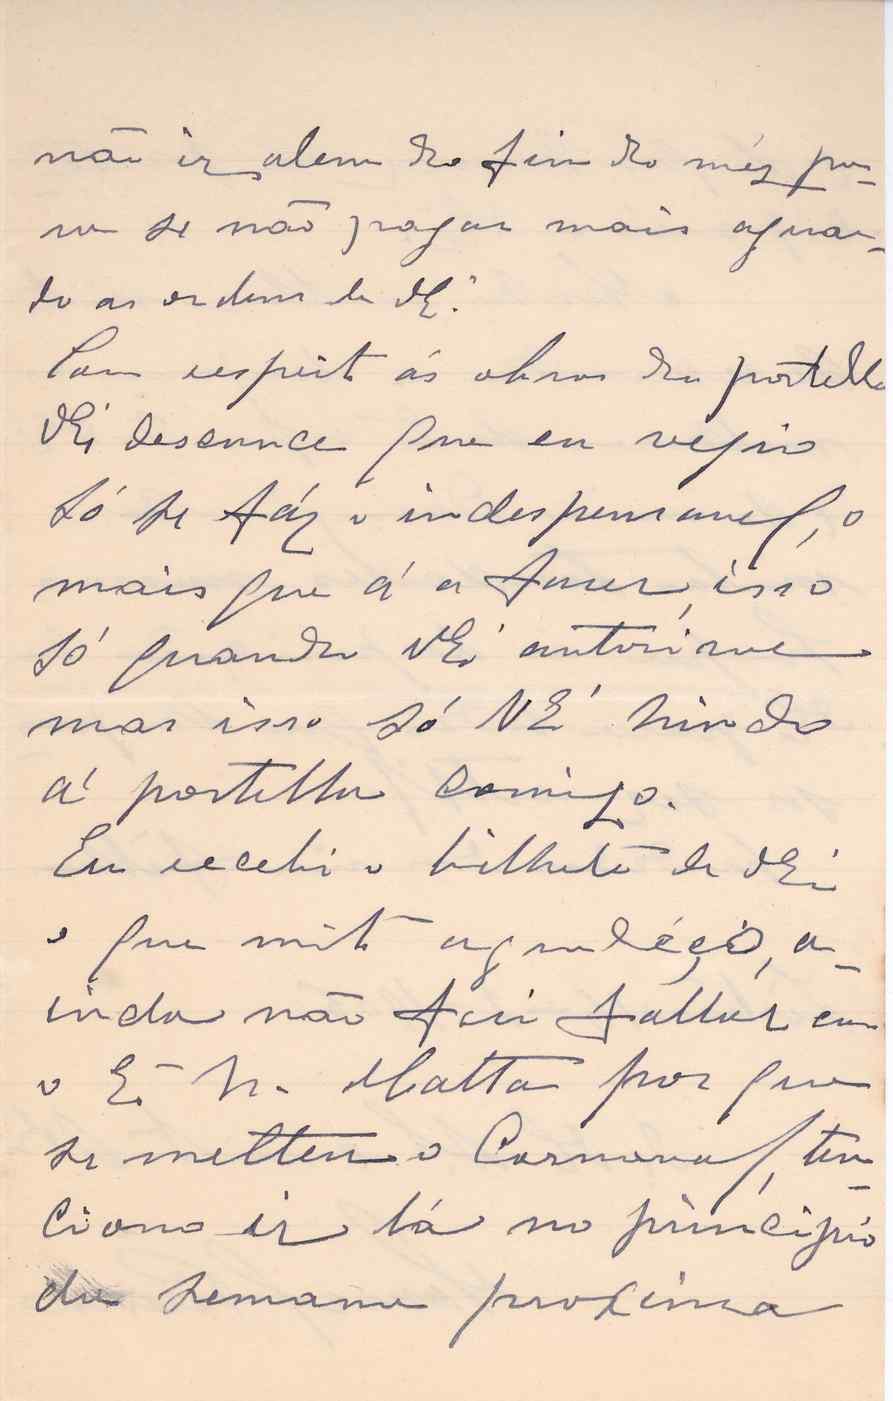 não ir alem do fim do méz pa-
ra se não pagar mais aguar-
do as ordens de VEª.
Com respeito ás obras da portella
VEª descance que eu vegio
só se fáz o indespensavel, o
mais que á a fazer, isso
só quando VEª autorise
mas isso só VEª vindo
á portella comigo.
Eu recebi o bilhete de VEª
o que mito agradéço, a-
inda não fui fallar com
o E. Sr. Matta por que
se metteu o Carnaval, ten-
ciono ir lá no principio
da semana proxima